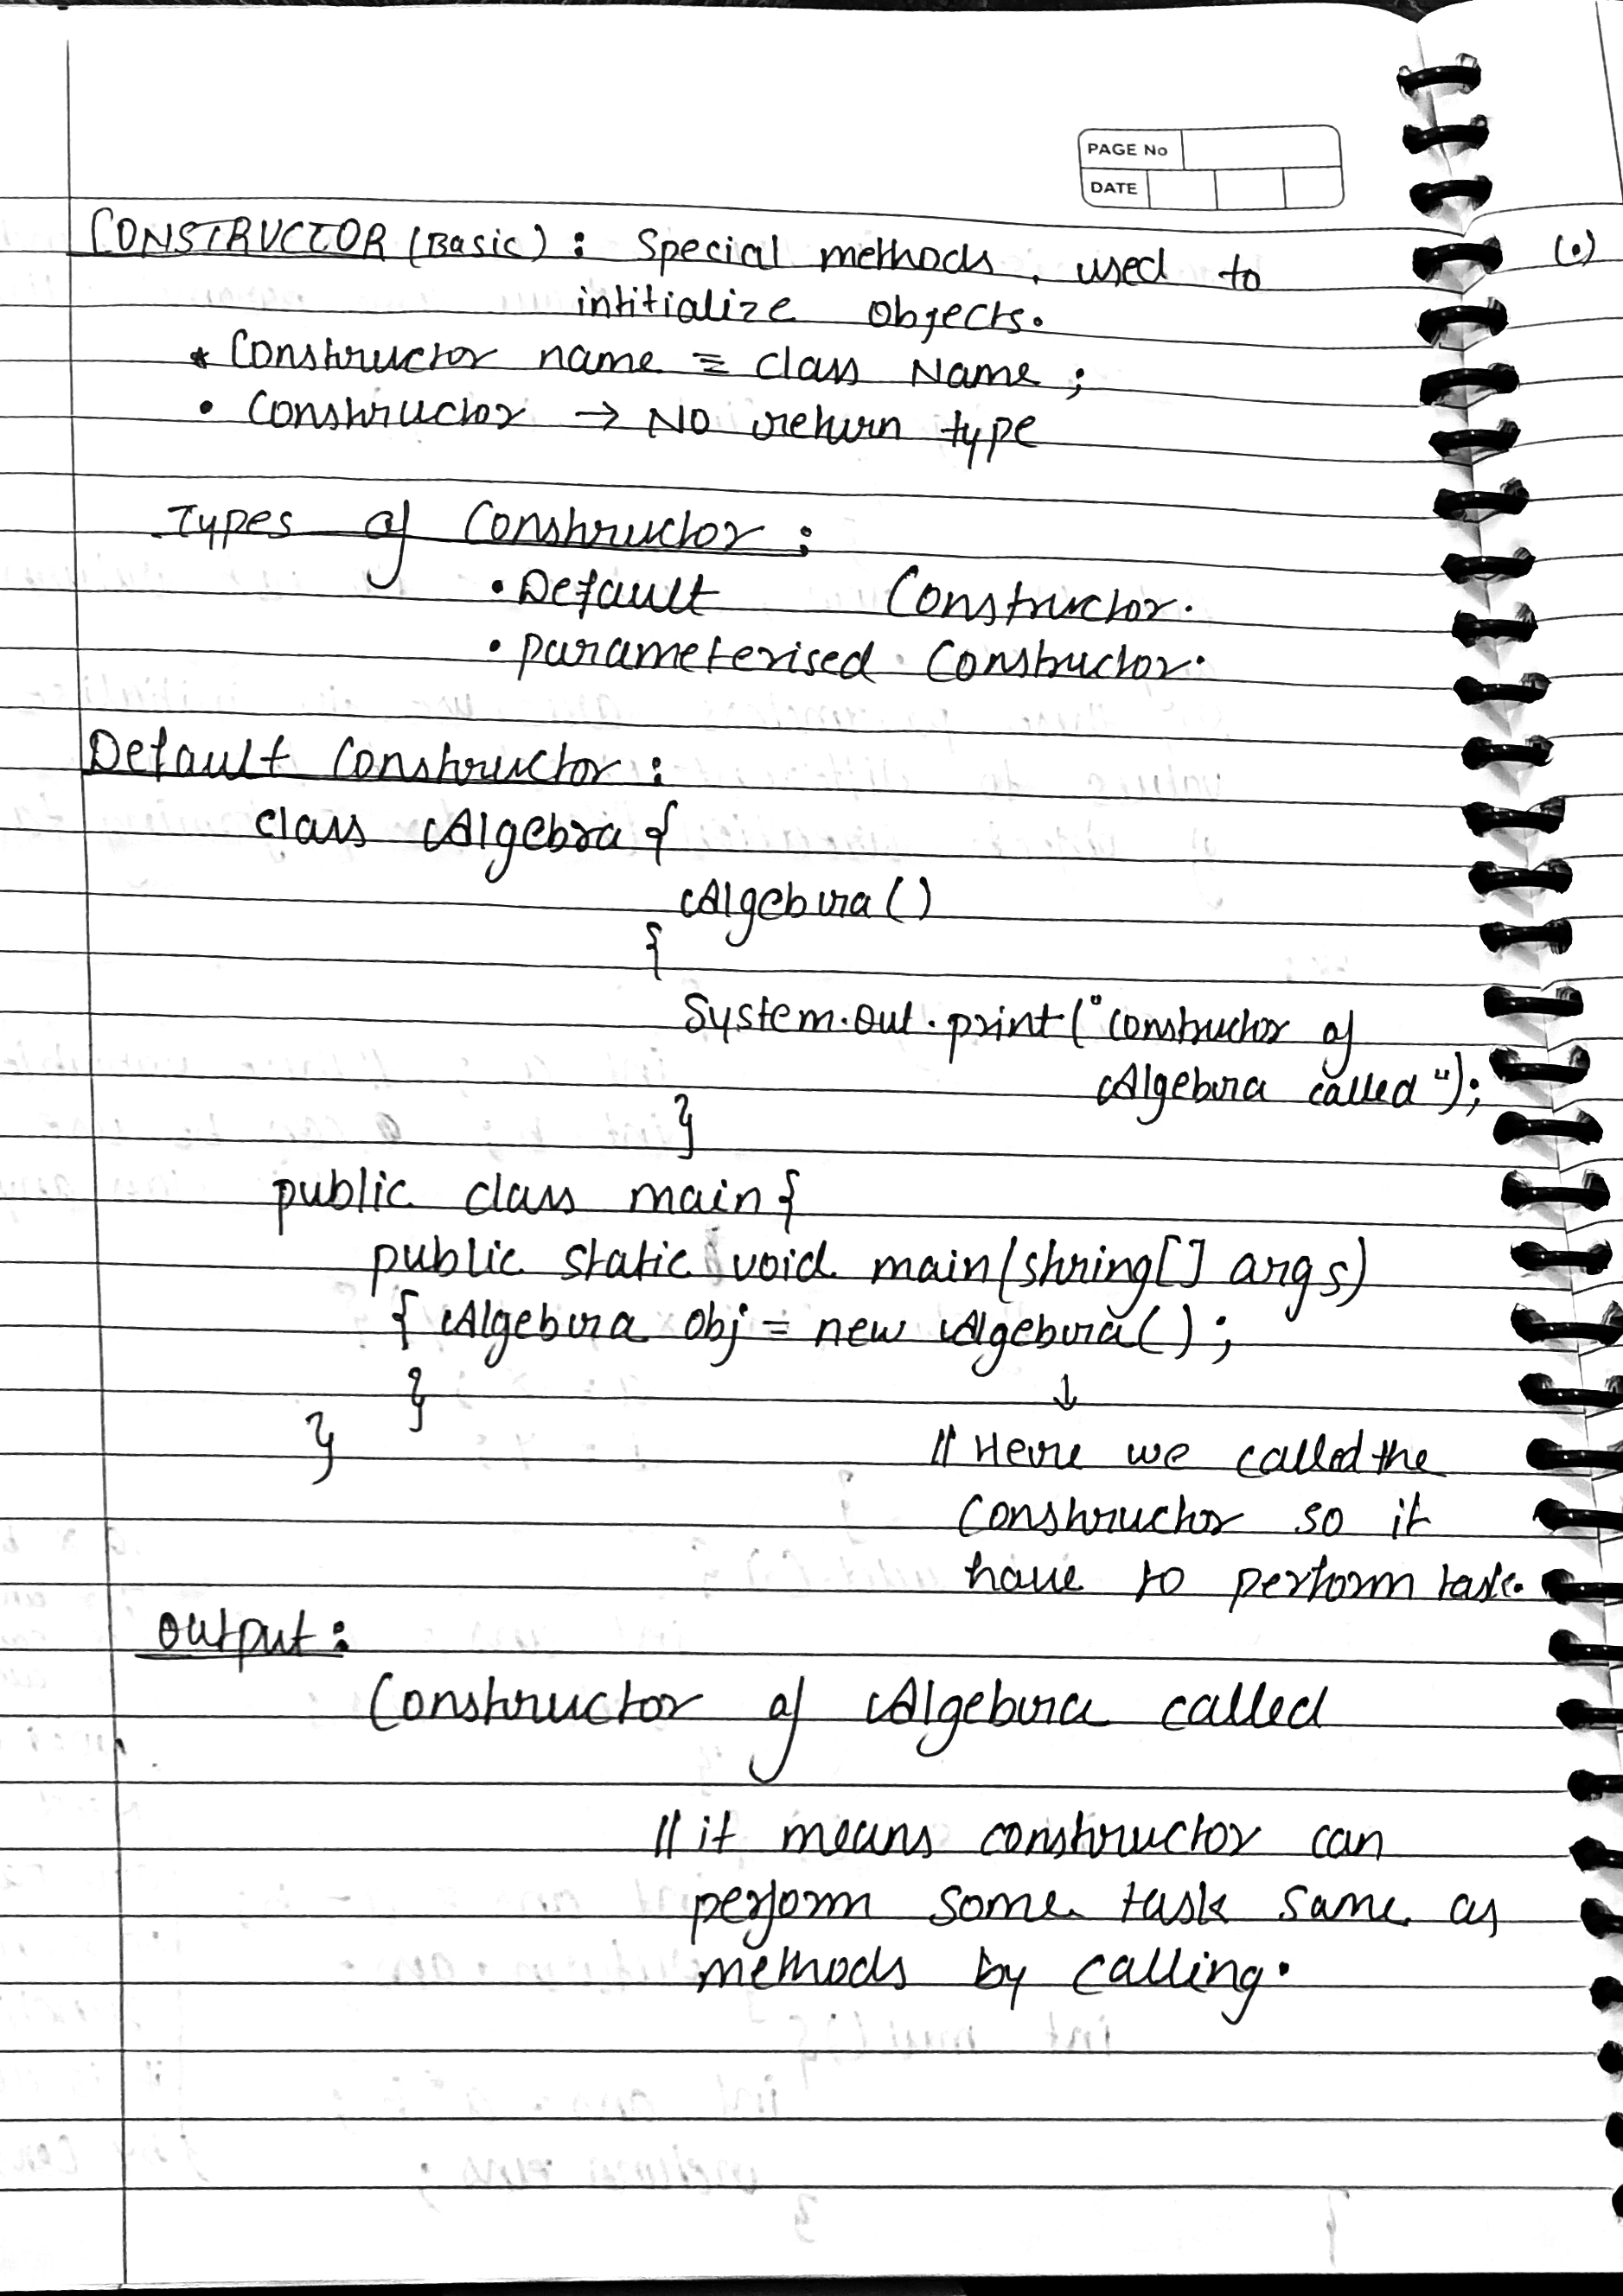 PAGE No
DATE
CONSTRUCTOR (Basic) : Special methods, used to
intitialize objects.
* Constructor name = class Name ;
• Constructor → NO return type
Types of Constructor :
• Default Constructor.
• parameterised Constructor.
Default Constructor :
class Algebra {
Algebra ()
{
System.out.print("constructor of
Algebra called");
}
public class main {
public static void main(string[] args)
{ Algebra obj = new Algebra() ;
}
↓
}
// Here we called the
Constructor so it
have to perform task.
output :
Constructor of Algebra called
// it means constructor can
perform some task same as
methods by calling.
(•)